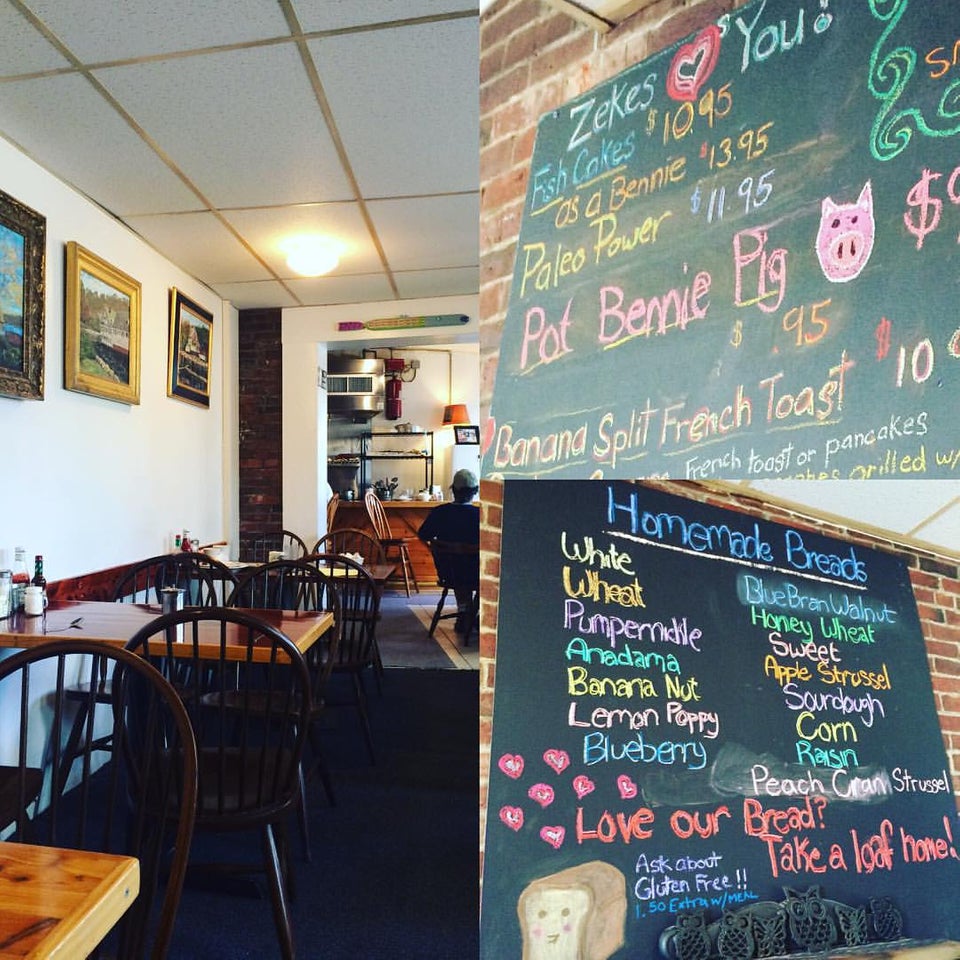 Zekes You!
Fish Cakes $10.95
as a Bennie $13.95
Paleo Power $11.95
Pot Bennie Pig $9
$ .95
Banana Split French Toast $10.9
French toast or pancakes
grilled w/
Homemade Breads
White
Wheat
Pumpernickle
Anadama
Banana Nut
Lemon Poppy
Blueberry
Blue Bran Walnut
Honey Wheat
Sweet
Apple Strussel
Sourdough
Corn
Raisin
Peach Cran Strussel
Love our Bread?
Take a loaf home!
Ask about
Gluten Free!!
1.50 Extra w/MEAL